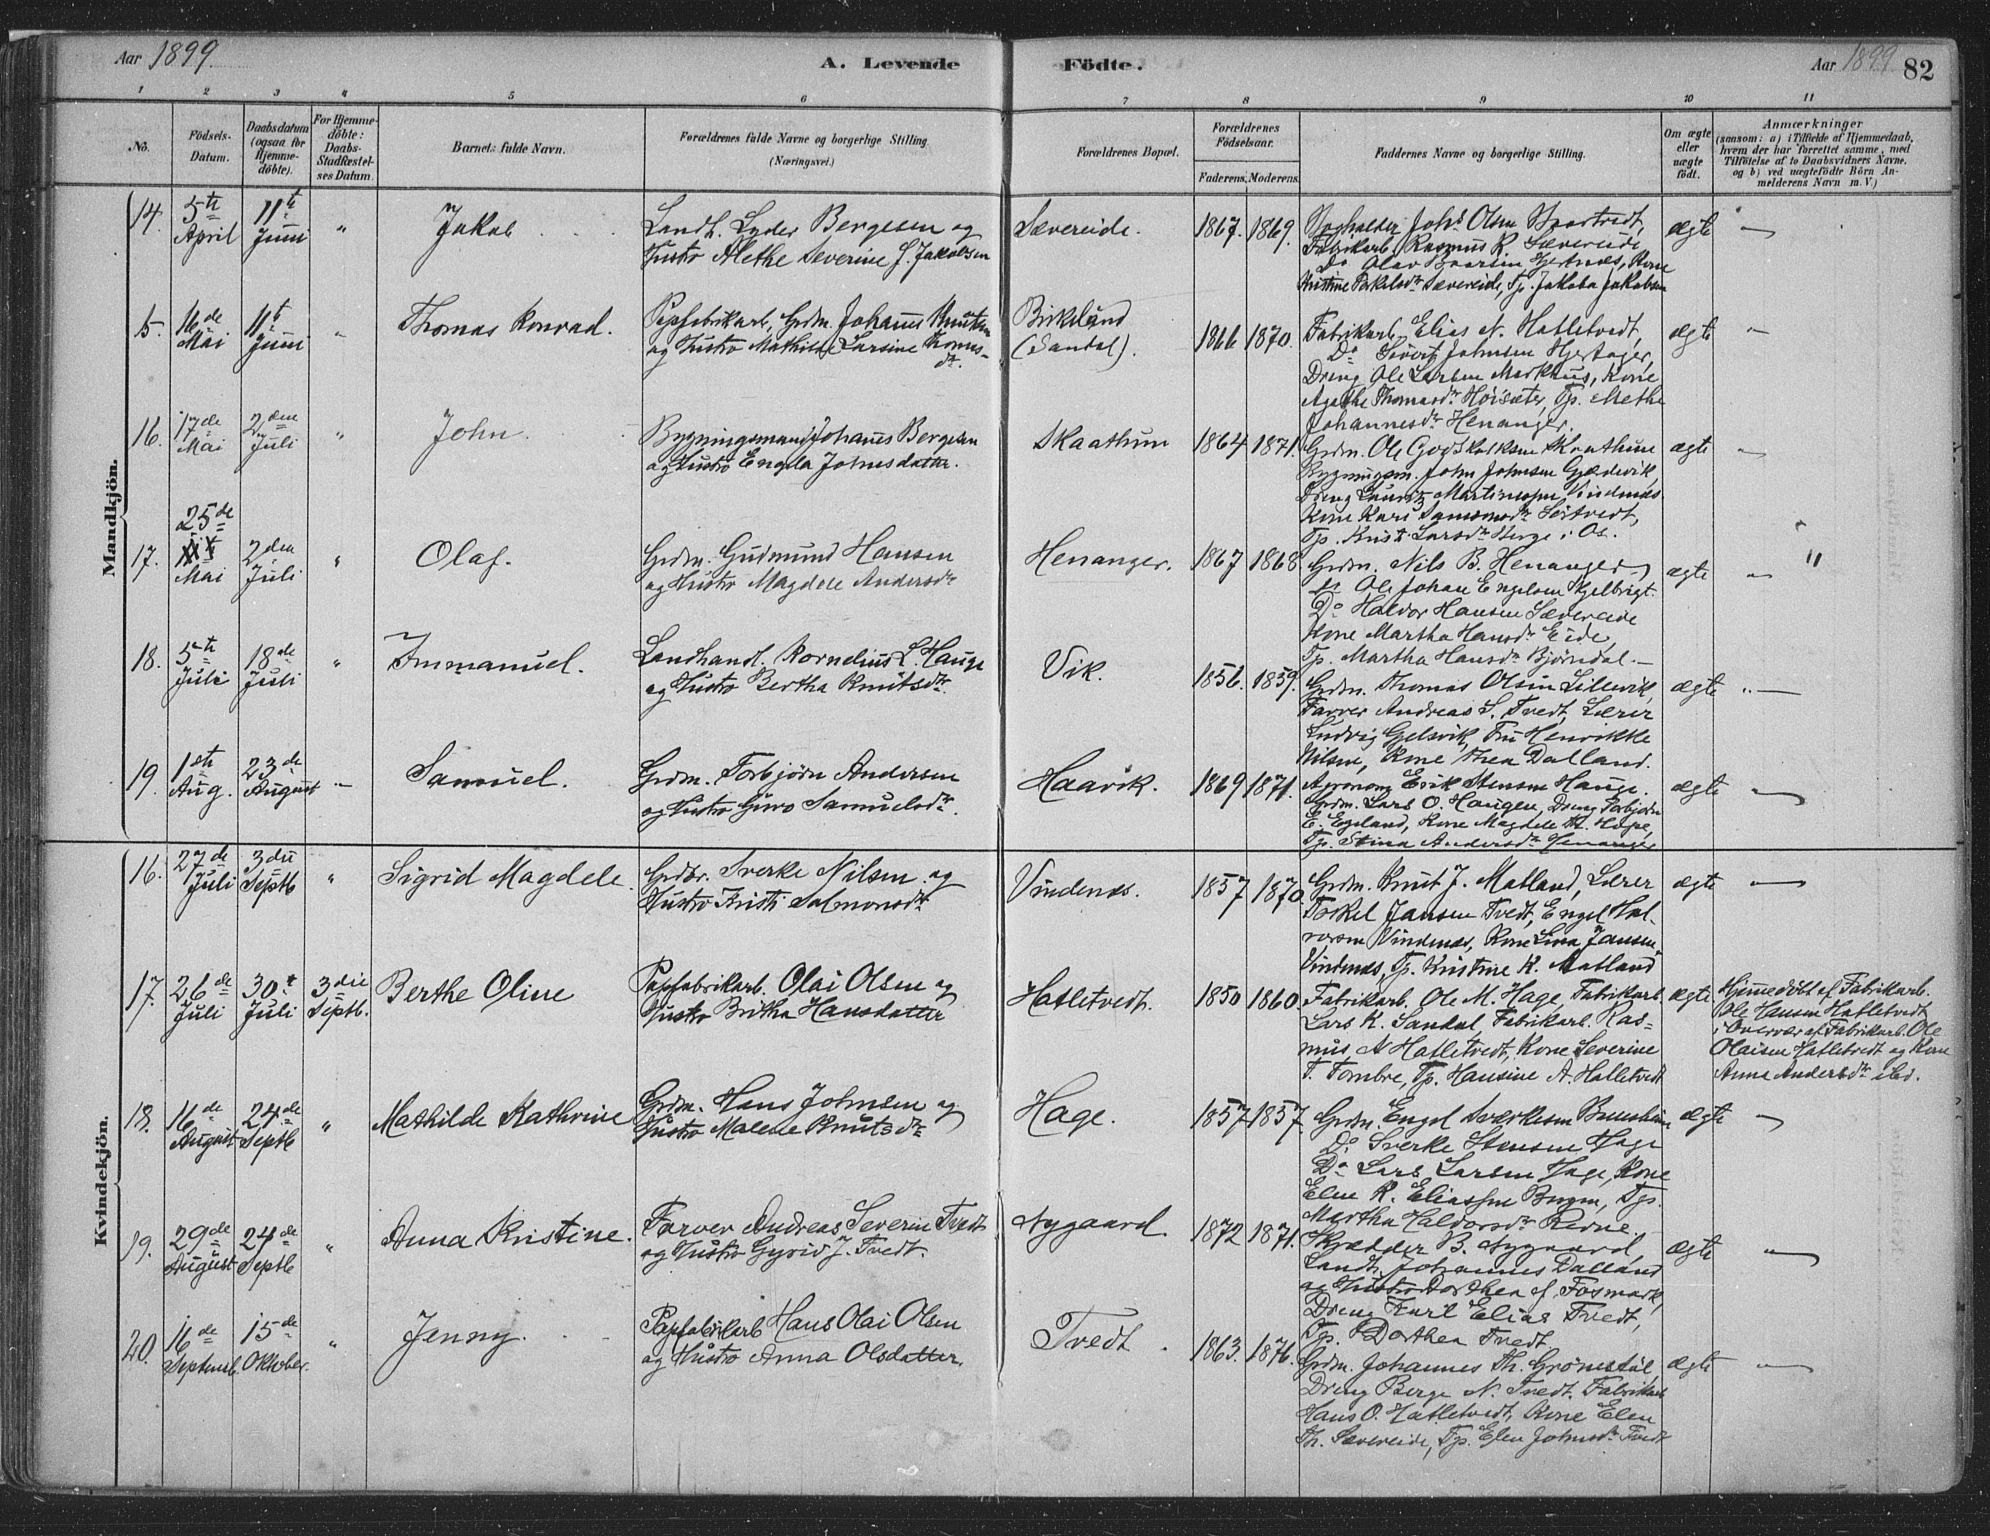 Aar 1899. A. Levende Födte. Aar 1899 82
1 2 3 4 5 6 7 8 9 10 11
No.
Födsels-Datum.
Daabsdatum (ogsaa for Hjemme-döbte).
For Hjemme-döbte: Daabs-Stadfæstel-ses Datum.
Barnets fulde Navn.
Forældrenes fulde Navne og borgerlige Stilling (Næringsvei.)
Forældrenes Bopæl.
Forældrenes Födselsaar.
Faderens. Moderens.
Faddernes Navne og borgerlige Stilling.
Om ægte eller uægte födt.
Anmærkninger
(saasom: a) i Tilfælde af Hjemmedaab,
hvem der har forrettet samme, med
Tilföielse af to Daabsvidners Navne,
og b) ved uægtefödte Börn An-
melderens Navn m. V.)
Mandkjön.
14. 5te April 11te Juni " Jakob
Landh. Lyder Bergesen og
Hustro Alethe Severine J. Jakobsen
Sævereide. 1867. 1869.
Bogholder Johs Olsen
Fabrikarb. Rasmus R. Sævereide
Do Olav Hjertnæs, Kone
Kristine Sævereide, Tp. Jakoba Jakobsen
ægte "
15. 16de Mai 11te Juni " Thomas Konrad.
Papfabrikarb., Grdm. Johannes Knutsen
og Hustro Mathilde Larsine
dtr.
Birkeland
(Sandal).
1866 1870.
Fabrikarb. Elias N. Hatletvedt,
Do Sivert Johnsen Hjertager,
Dreng Ole Larsen Markhus, Kone
Agathe Thomasdtr Høisæter, Tp. Methe
Johannesdtr Henanger.
ægte "
16. 17de Mai 2den Juli " John.
Bygningsmand Johannes Bergesen
og Hustro Engela Johnsdatter.
Skaathun 1864 1871.
Grdm. Ole Godskalksen Skaathun
Bygningsm. John Johnsen Gjødevik,
Dreng Lauritz Martinsen Vindenæs
Kone Kari Samsonsdtr
Tp. Kristi Larsdtr Berge i Os.
ægte "
17. 25de Mai 2den Juli " Olaf.
Grdm. Gudmund Hansen
og Hustro Magdele Andersdtr
Henanger. 1867 1868
Grdm. Nils B. Henanger,
Do Ole Johan Engelsen Hjelbrigt.
Do Haldor Hansen Sævereide
Kone Martha Hansdtr Eide,
Tp. Martha Hansdtr Bjørndal.
ægte " "
18. 5te Juli 18de Juli " Immanuel.
Landhandl. Kornelius L. Hauge
og Hustro Bertha Knutsdtr.
Vik. 1856. 1859.
Grdm. Thomas Olsen Lillevik,
Farver Andreas S. Tvedt, Lærer
Ludvig Gjelsvik, Fru Henrikke
Nilsen, Kone Thea Dalland.
ægte "
19. 1ste Aug. 23de August " Samuel.
Grdm. Torbjørn Andersen
og Hustro Guro Samuelsdtr.
Haavik. 1869 1871.
Agronom Erik Stensen Hauge.
Grdm. Lars O. Haugen, Dreng Torbjørn
E. Egeland, Kone Magdele H. Hope,
Tp. Stina Andersdtr Henanger
ægte "
Kvindekjön.
16. 27de Juli 3die Septb " Sigrid Magdele.
Grdbr. Sverke Nilsen og
Hustro Kristi Salmonsdtr
Vindenæs. 1857 1870.
Grdm. Knut J. Matland, Lærer
Torkel Jansen Tvedt, Engel Hal-
vorsen Vindenæs, Kone Lina Jansen
Vindenæs, Tp. Kristine K. Matland
ægte "
17. 26de Juli 30te Juli 3die Septb. Berthe Oline
Papfabrikarb. Olai Olsen og
Hustro Britha Hansdatter
Hatletvedt. 1850 1860.
Fabrikarb. Ole M. Hage, Fabrikarb
Lars K. Sandal, Fabrikarb. Ras-
mus A Hatletvedt, Kone Severine
T. Tombre, Tp. Hansine A. Hatletvedt
ægte
Hjemmedöbt af Fabrikarb.
Ole Hansen Hatletvedt
i Overvær af Fabrikarb. Ole
Olaisen Hatletvedt og Kone
Anna Andersdtr ibd.
18. 16de August 24de Septb " Mathilde Kathrine
Grdm. Hans Johnsen og
Hustro Malene Knutsdtr
Hage. 1857 1857
Grdm. Engel Sverkesen
Do Sverke Stensen Hage
Do Lars Larsen Hage, Kone
Elen K. Eliassen Bergen, Tp.
Martha Haldorsdtr
ægte "
19. 29de August 24de Septb " Anna Kristine.
Farver Andreas Severin Tvedt
og Hustro Gyrid J. Tvedt.
Nygaard 1872 1871.
Skrædder B. Nygaard,
Landh. Johannes Dalland
og Hustro Dorthea f. Fosmark,
Dreng Karl Elias Tvedt,
Tp. Dorthea Tvedt
ægte "
20. 16de Septemb. 15de Oktober. " Jenny.
Papfabrikarb Hans Olai Olsen
og Hustro Anna Olsdatter.
Tvedt. 1863. 1876.
Grdm. Johannes Th. Grønestøl,
Dreng Berge N. Tvedt, Fabrikarb
Hans O. Hatletvedt, Kone Elen
Th. Sævereide, Tp. Elen Johnsdtr Tvedt
ægte "